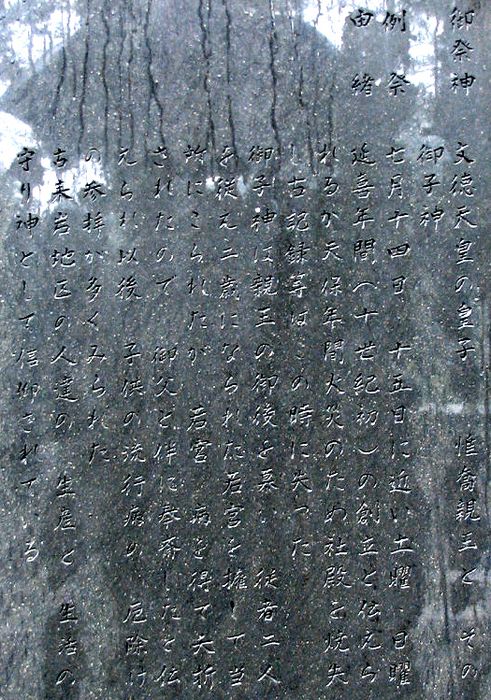 御祭神 文徳天皇の皇子 惟喬親王と その
御子神
例祭 七月十四日 十五日に近い土曜、日曜
由緒 延喜年間(十世紀初)の創立と伝えら
れるが天保年間火災のため社殿を焼失
し古記録等はこの時に失った
御子神は親王の御後を慕い 従者二人
を従え二歳になられた若宮を擁して当
所にこられたが 若宮 病を得て夭折
されたので 御父と伴に奉斎したと伝
えられ以後 子供の流行病の 厄除け
の参拝が多くみられた
古来岩地区の人達の 生産と 生活の
守り神として信仰されている